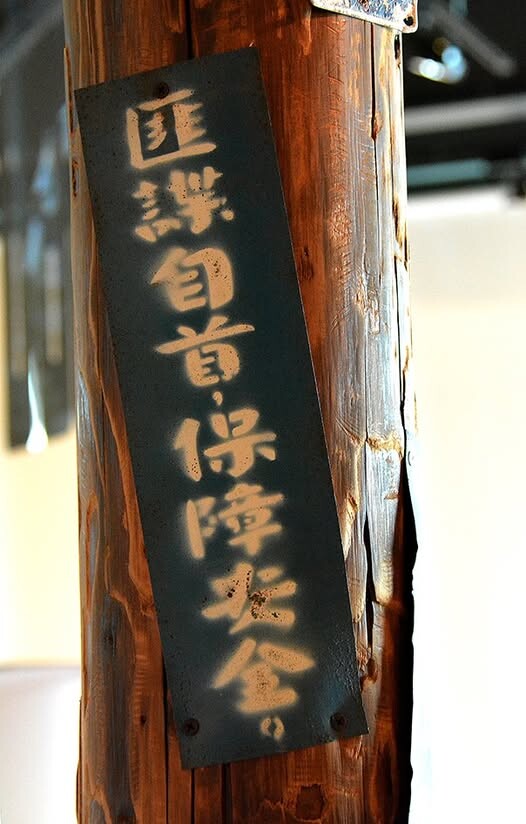 匪諜自首，保障安全。